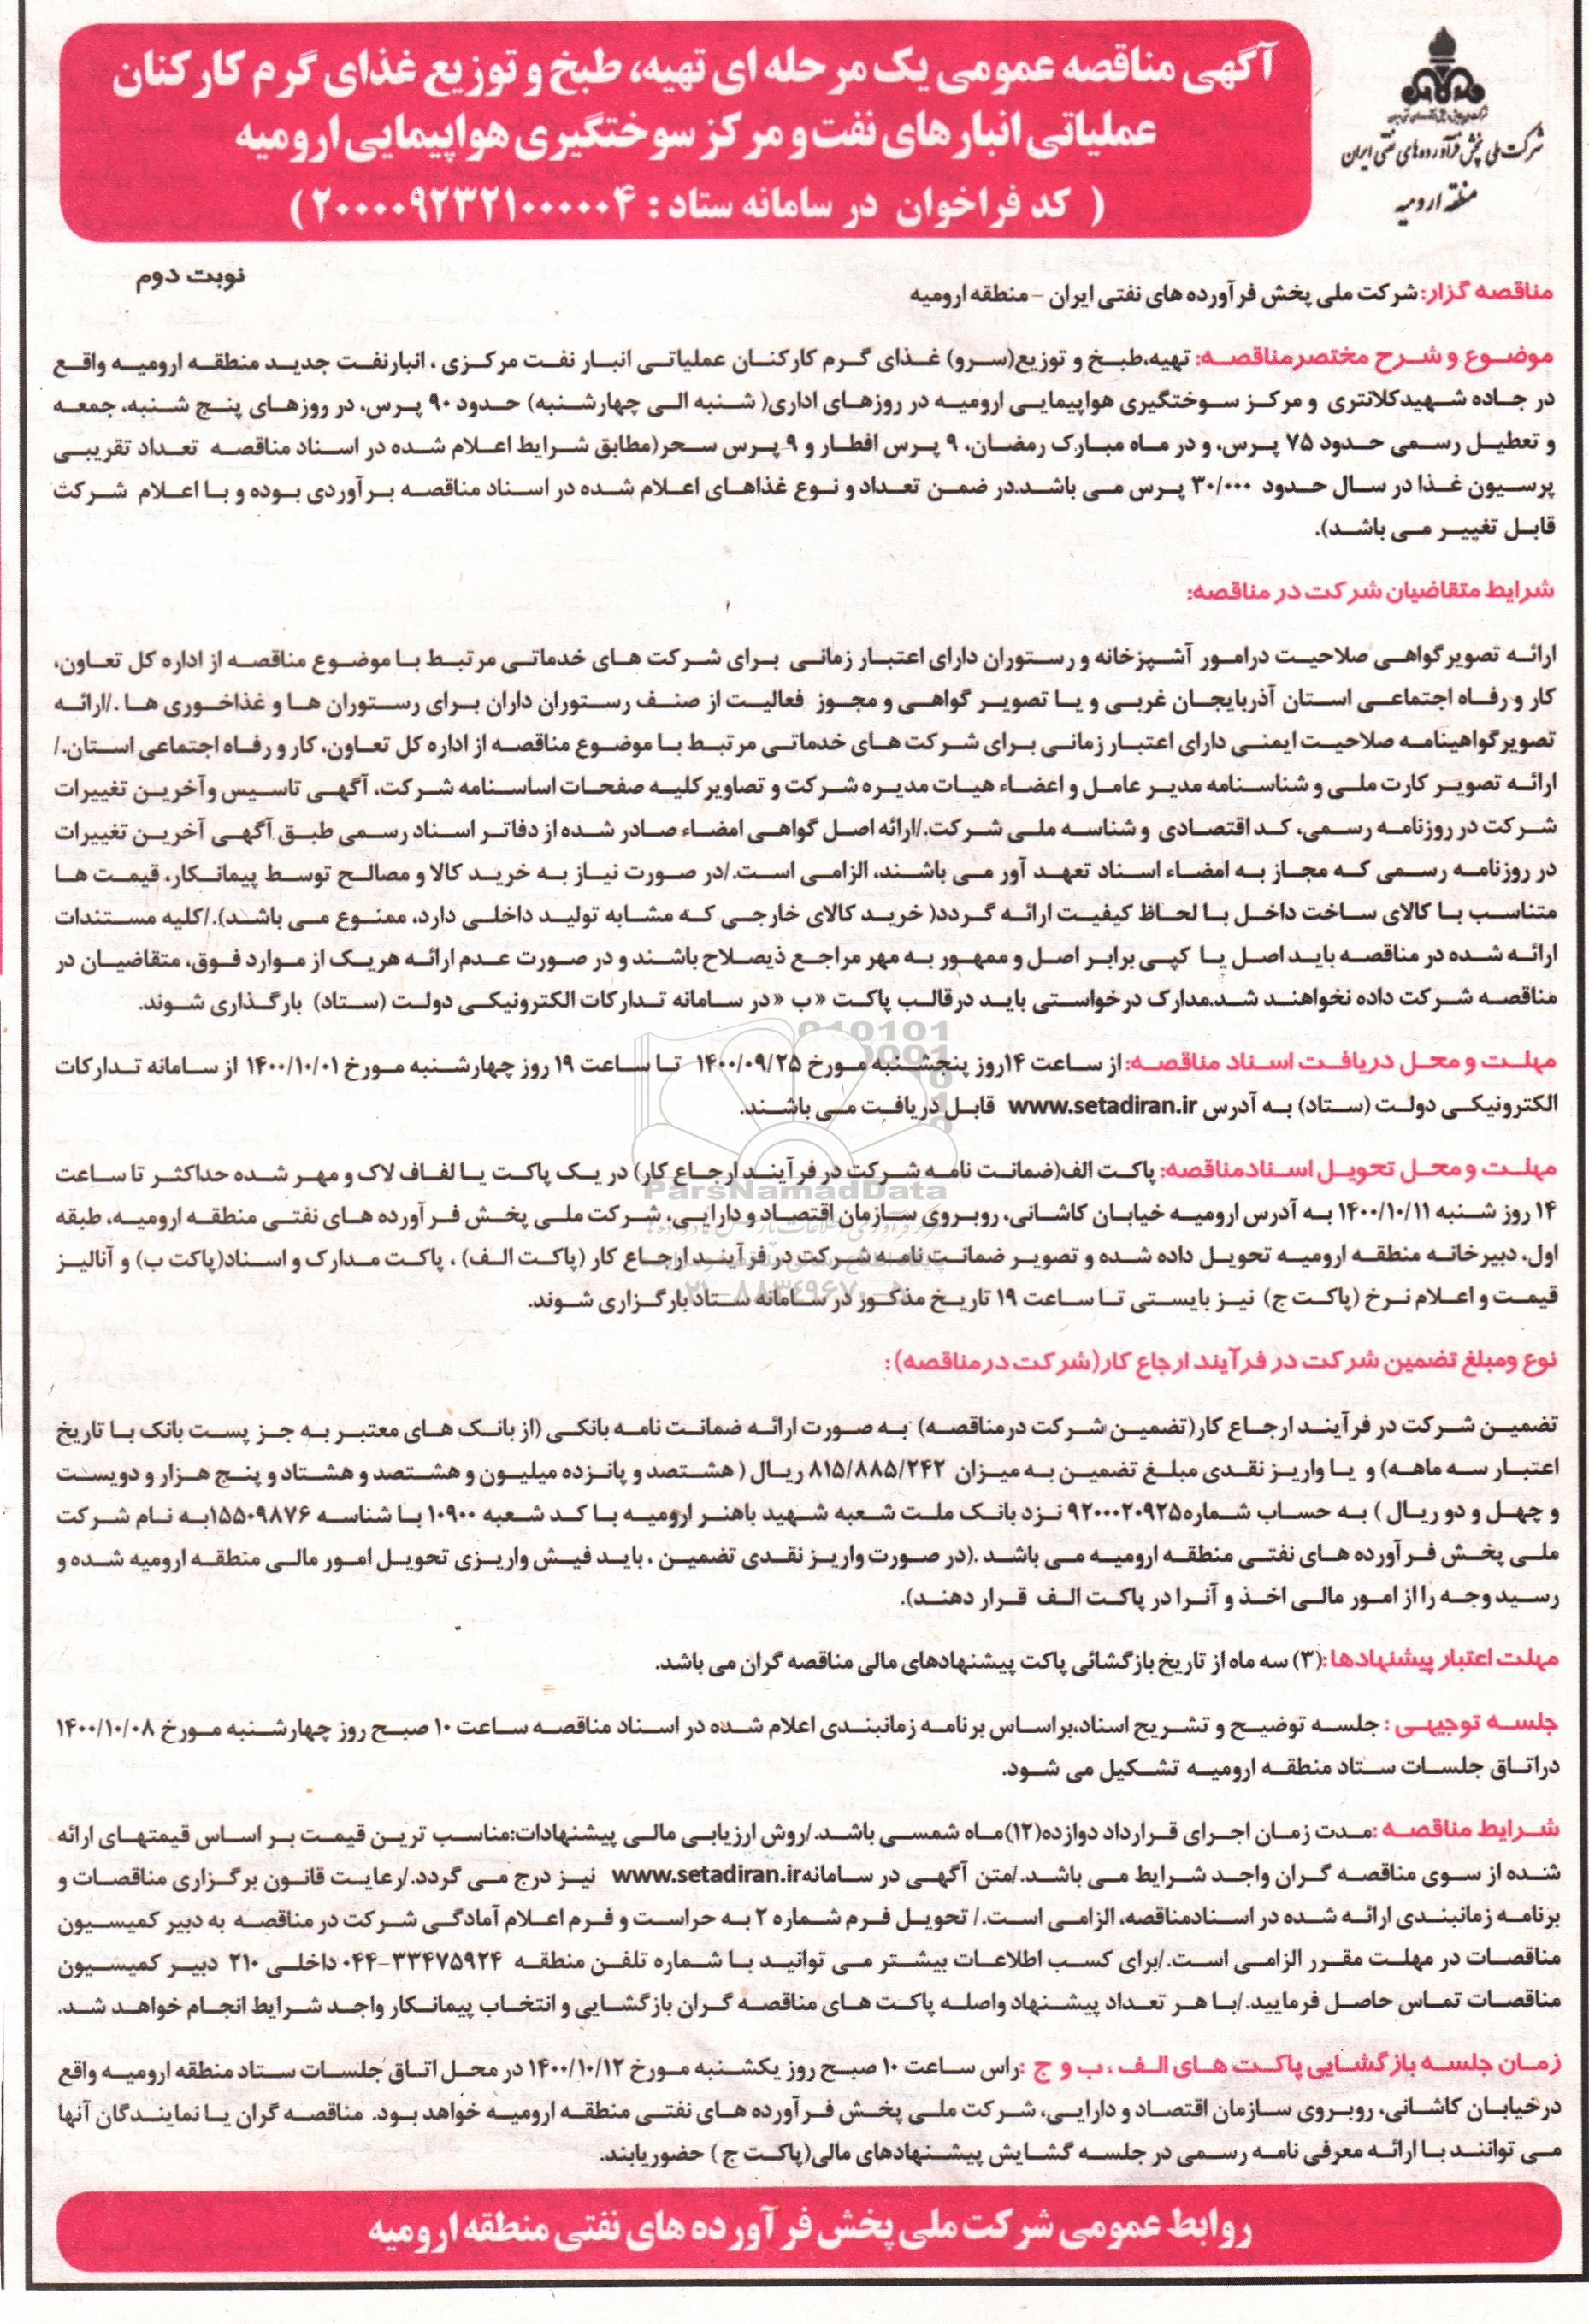 شرکت ملی پخش فرآورده‌های نفتی ایران
منطقه ارومیه
آگهی مناقصه عمومی یک مرحله ای تهیه، طبخ و توزیع غذای گرم کارکنان
عملیاتی انبارهای نفت و مرکز سوختگیری هواپیمایی ارومیه
( کد فراخوان در سامانه ستاد : ۲۰۰۰۰۹۲۳۲۱۰۰۰۰۰۴)
نوبت دوم
مناقصه گزار: شرکت ملی پخش فرآورده های نفتی ایران - منطقه ارومیه
موضوع و شرح مختصرمناقصه: تهیه،طبخ و توزیع(سرو) غذای گرم کارکنان عملیاتی انبار نفت مرکزی ، انبارنفت جدید منطقه ارومیه واقع
در جاده شهیدکلانتری و مرکز سوختگیری هواپیمایی ارومیه در روزهای اداری( شنبه الی چهارشنبه) حدود ۹۰ پرس، در روزهای پنج شنبه، جمعه
و تعطیل رسمی حدود ۷۵ پرس، و در ماه مبارک رمضان، ۹ پرس افطار و ۹ پرس سحر(مطابق شرایط اعلام شده در اسناد مناقصه تعداد تقریبی
پرسیون غذا در سال حدود ۳۰/۰۰۰ پرس می باشد.در ضمن تعداد و نوع غذاهای اعلام شده در اسناد مناقصه برآوردی بوده و با اعلام شرکت
قابل تغییر می باشد).
شرایط متقاضیان شرکت در مناقصه:
ارائه تصویرگواهی صلاحیت درامور آشپزخانه و رستوران دارای اعتبار زمانی برای شرکت های خدماتی مرتبط با موضوع مناقصه از اداره کل تعاون،
کار و رفاه اجتماعی استان آذربایجان غربی و یا تصویر گواهی و مجوز فعالیت از صنف رستوران داران برای رستوران ها و غذاخوری ها ./ارائه
تصویرگواهینامه صلاحیت ایمنی دارای اعتبار زمانی برای شرکت های خدماتی مرتبط با موضوع مناقصه از اداره کل تعاون، کار و رفاه اجتماعی استان./
ارائه تصویر کارت ملی و شناسنامه مدیر عامل و اعضاء هیات مدیره شرکت و تصاویرکلیه صفحات اساسنامه شرکت، آگهی تاسیس وآخرین تغییرات
شرکت در روزنامه رسمی، کد اقتصادی و شناسه ملی شرکت./ارائه اصل گواهی امضاء صادر شده از دفاتر اسناد رسمی طبق آگهی آخرین تغییرات
در روزنامه رسمی که مجاز به امضاء اسناد تعهد آور می باشند، الزامی است./در صورت نیاز به خرید کالا و مصالح توسط پیمانکار، قیمت ها
متناسب با کالای ساخت داخل با لحاظ کیفیت ارائه گردد( خرید کالای خارجی که مشابه تولید داخلی دارد، ممنوع می باشد)./کلیه مستندات
ارائه شده در مناقصه باید اصل یا کپی برابر اصل و ممهور به مهر مراجع ذیصلاح باشند و در صورت عدم ارائه هریک از موارد فوق، متقاضیان در
مناقصه شرکت داده نخواهند شد.مدارک درخواستی باید درقالب پاکت « ب « در سامانه تدارکات الکترونیکی دولت (ستاد) بارگذاری شوند.
مهلت و محل دریافت اسناد مناقصه: از ساعت ۱۴روز پنجشنبه مورخ ۱۴۰۰/۰۹/۲۵ تا ساعت ۱۹ روز چهارشنبه مورخ ۱۴۰۰/۱۰/۰۱ از سامانه تدارکات
الکترونیکی دولت (ستاد) به آدرس www.setadiran.ir قابل دریافت می باشند.
مهلت و محل تحویل اسنادمناقصه: پاکت الف(ضمانت نامه شرکت در فرآیند ارجاع کار) در یک پاکت یا لفاف لاک و مهر شده حداکثر تا ساعت
۱۴ روز شنبه ۱۴۰۰/۱۰/۱۱ به آدرس ارومیه خیابان کاشانی، روبروی سازمان اقتصاد و دارایی، شرکت ملی پخش فرآورده های نفتی منطقه ارومیه، طبقه
اول، دبیرخانه منطقه ارومیه تحویل داده شده و تصویر ضمانت نامه شرکت در فرآیند ارجاع کار (پاکت الف) ، پاکت مدارک و اسناد(پاکت ب) و آنالیز
قیمت و اعلام نرخ (پاکت ج) نیز بایستی تا ساعت ۱۹ تاریخ مذکور در سامانه ستاد بارگزاری شوند.
ParsNamadData
نوع ومبلغ تضمین شرکت در فرآیند ارجاع کار(شرکت درمناقصه):
تضمین شرکت در فرآیند ارجاع کار(تضمین شرکت درمناقصه) به صورت ارائه ضمانت نامه بانکی (از بانک های معتبر به جز پست بانک با تاریخ
اعتبار سه ماهه) و یا واریز نقدی مبلغ تضمین به میزان ۸۱۵/۸۸۵/۲۴۲ ریال ( هشتصد و پانزده میلیون و هشتصد و هشتاد و پنج هزار و دویست
و چهل و دو ریال ) به حساب شماره۹۲۰۰۰۲۰۹۲۵ نزد بانک ملت شعبه شهید باهنر ارومیه با کد شعبه ۱۰۹۰۰ با شناسه ۱۵۵۰۹۸۷۶به نام شرکت
ملی پخش فرآورده های نفتی منطقه ارومیه می باشد .(در صورت واریز نقدی تضمین ، باید فیش واریزی تحویل امور مالی منطقه ارومیه شده و
رسید وجه را از امور مالی اخذ و آنرا در پاکت الف قرار دهند).
مهلت اعتبار پیشنهادها:(۳) سه ماه از تاریخ بازگشائی پاکت پیشنهادهای مالی مناقصه گران می باشد.
جلسه توجیهی : جلسه توضیح و تشریح اسناد،براساس برنامه زمانبندی اعلام شده در اسناد مناقصه ساعت ۱۰ صبح روز چهارشنبه مورخ ۱۴۰۰/۱۰/۰۸
دراتاق جلسات ستاد منطقه ارومیه تشکیل می شود.
شرایط مناقصه :مدت زمان اجرای قرارداد دوازده(۱۲)ماه شمسی باشد./روش ارزیابی مالی پیشنهادات:مناسب ترین قیمت بر اساس قیمتهای ارائه
شده از سوی مناقصه گران واجد شرایط می باشد./متن آگهی در سامانهwww.setadiran.ir نیز درج می گردد./رعایت قانون برگزاری مناقصات و
برنامه زمانبندی ارائه شده در اسنادمناقصه، الزامی است./ تحویل فرم شماره ۲ به حراست و فرم اعلام آمادگی شرکت در مناقصه به دبیر کمیسیون
مناقصات در مهلت مقرر الزامی است./برای کسب اطلاعات بیشتر می توانید با شماره تلفن منطقه ۳۳۴۷۵۹۲۴-۰۴۴ داخلی ۲۱۰ دبیر کمیسیون
مناقصات تماس حاصل فرمایید./با هر تعداد پیشنهاد واصله پاکت های مناقصه گران بازگشایی و انتخاب پیمانکار واجد شرایط انجام خواهد شد.
زمان جلسه بازگشایی پاکت های الف ، ب و ج :راس ساعت ۱۰ صبح روز یکشنبه مورخ ۱۴۰۰/۱۰/۱۲ در محل اتاق جلسات ستاد منطقه ارومیه واقع
درخیابان کاشانی، روبروی سازمان اقتصاد و دارایی، شرکت ملی پخش فرآورده های نفتی منطقه ارومیه خواهد بود. مناقصه گران یا نمایندگان آنها
می توانند با ارائه معرفی نامه رسمی در جلسه گشایش پیشنهادهای مالی(پاکت ج ) حضوریابند.
روابط عمومی شرکت ملی پخش فرآورده های نفتی منطقه ارومیه